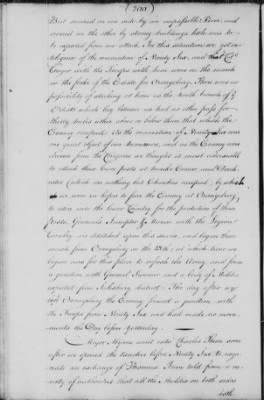 (200)
But secured on one side by an impassable River, and
secured on the other by strong buildings there was to
be expected from an attack. In this situation we got in-
telligence of the evacuation of Ninety Six, and that Col.
Cruger with the Troops with him were on the march
on the fork of the Edisto for Orangeburg. There was no
possibility of attacking at home as the North branch of
Edisto which lay between us had no other pass for
thirty miles either above or below than that which the
Enemy occupied. As the evacuation of Ninety Six was
one great object of our manœuvre, and as the Enemy were
driven from the Congaree we thought it most advisable
to attack their lower posts at Moncks Corner and Dorch-
ester (which are nothing but Churches occupied) by which
we were in hopes to force the Enemy at Orangeburg
to retire into the lower Country for the protection of those
posts. Generals Sumpter & Marion with the Legion
Cavalry are detached upon that service, and began their
march from Orangeburg on the 13th, at which time we
began ours for this place to refresh the Army, and form
a junction with General Davidson and a body of Militia
expected from Salisbury district. The day after we
left Orangeburg the Enemy formed a junction with
the Troops from Ninety Six and had made no move-
ments the Day before yesterday.
Major Hyrne went into Charles Town soon
after we opened the trenches before Ninety Six to nego-
tiate an exchange of Prisoners. From told from a va-
riety of instances that all the Militia on both sides
both